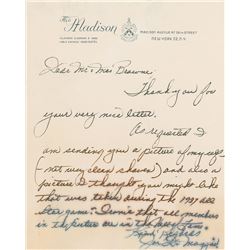 The Madison
MADISON AVENUE AT 58TH STREET
NEW YORK 22, N.Y.
Dear Mr & Mrs Browne.
Thank you for
your very nice letter.
As requested I
am sending you a picture of myself
(not very clean shaven) and also a
picture I thought you might like
that was taken during the 1937 all
Star game. I think that all members
in the picture are in the
Kind Regards
Joe Di Maggio